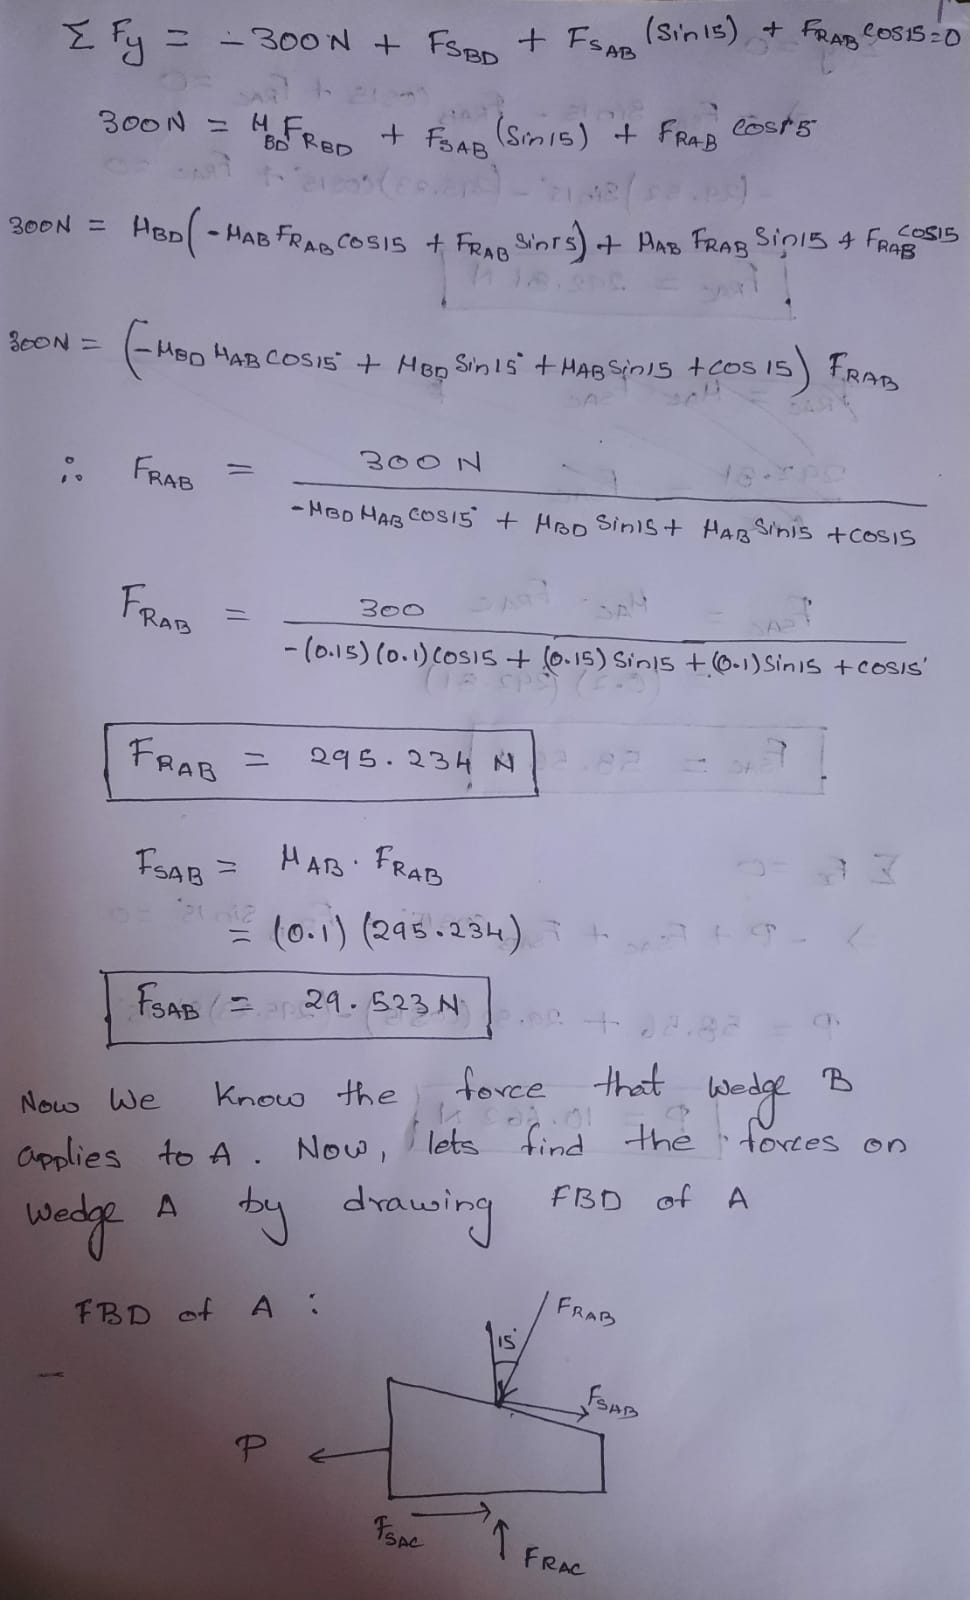 Σ Fy = -300N + FSBD + FSAB (Sin15) + FRAB COS15=0
300N = μBD FRBD + FSAB (Sin15) + FRAB COS15
300N = μBD(-μAB FRAB COS15 + FRAB Sin15) + μAB FRAB Sin15 + FRAB COS15
300N = (-μBD μAB COS15° + μBD Sin15° + μAB Sin15 + COS 15) FRAB
∴ FRAB = 300 N
-μBD μAB COS15° + μBD Sin15 + μAB Sin15 + COS15
FRAB = 300
-(0.15)(0.1)COS15 + (0.15) Sin15 + (0.1)Sin15 + COS15°
FRAB = 295.234 N
FSAB = μAB . FRAB
= (0.1) (295.234)
FSAB = 29.523 N
Now We Know the force that wedge B
applies to A. Now, lets find the forces on
wedge A by drawing FBD of A
FBD of A :
FRAB
15°
FSAB
P
FSAC
FRAC